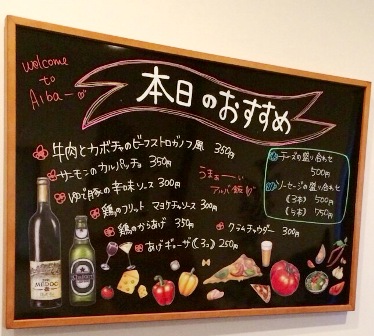 welcome
to
Aiba〜
本日のおすすめ
牛肉とカボチャのビーフストロガノフ風 350円
サーモンのカルパッチョ 350円
ゆで豚の辛味ソース 300円
鶏のフリット マヨケチャソース 300円
鶏のからあげ 350円
あげギョーザ(5コ) 250円
うまぁーーい
アルバ飯!!
クラムチャウダー 300円
チーズの盛り合わせ
500円
ソーセージの盛り合わせ
(3本) 500円
(5本) 750円
MEDOC